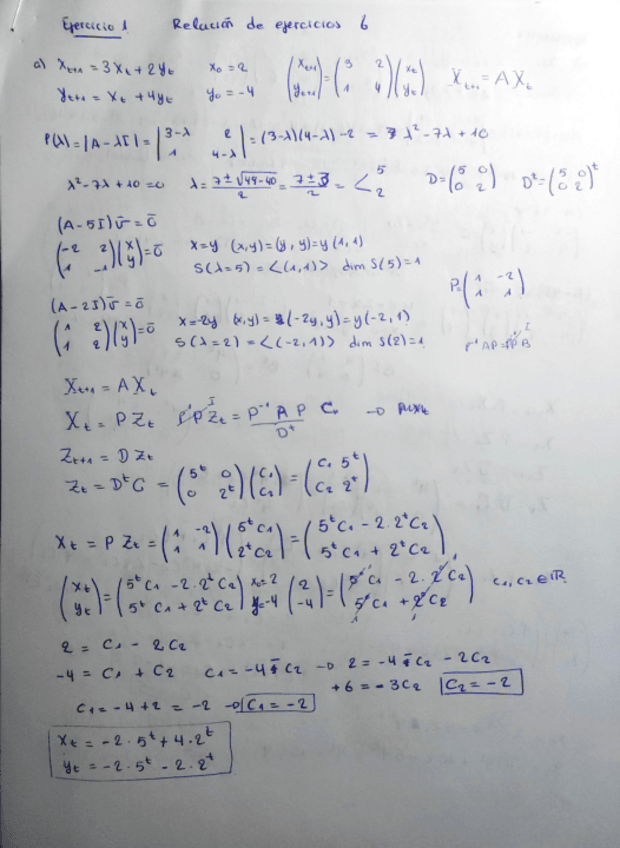 Ejercicio 1 Relación de ejercicios 6
a) x_{t+1} = 3x_t + 2y_t x_0 = 2 (x_{t+1} y_{t+1}) = (3 2 1 4)(x_t y_t) X_{t+1} = A X_t
y_{t+1} = x_t + 4y_t y_0 = -4
P(λ) = |A - λI| = |3-λ 2 1 4-λ| = (3-λ)(4-λ) - 2 = λ² - 7λ + 10
λ² - 7λ + 10 = 0 λ = (7 ± √(49-40))/2 = (7 ± 3)/2 = < 5 2 D = (5 0 0 2) D^t = (5 0 0 2)^t
(A - 5I) v̄ = ō
(-2 2 1 -1)(x y) = ō x = y (x,y) = (y, y) = y (1, 1)
S(λ=5) = <(1,1)> dim S(5) = 1
P = (1 -2 1 1)
(A - 2I) v̄ = ō
(1 2 1 2)(x y) = ō x = -2y (x,y) = (-2y, y) = y(-2, 1)
S(λ=2) = <(-2,1)> dim S(2) = 1
X_{t+1} = A X_t
X_t = P Z_t P^{-1} P Z_t = P^{-1} A P C
I
D^t
Z_{t+1} = D Z_t
Z_t = D^t C = (5^t 0 0 2^t)(C_1 C_2) = (C_1 5^t C_2 2^t)
X_t = P Z_t = (1 -2 1 1)(5^t C_1 2^t C_2) = (5^t C_1 - 2·2^t C_2 5^t C_1 + 2^t C_2)
(x_t y_t) = (5^t C_1 - 2·2^t C_2 5^t C_1 + 2^t C_2) x_0 = 2 y_0 = -4 (2 -4) = (5^t C_1 - 2·2^t C_2 5^t C_1 + 2^t C_2) C_1, C_2 ∈ ℝ
2 = C_1 - 2C_2
-4 = C_1 + C_2 C_1 = -4 - C_2 → 2 = -4 - C_2 - 2C_2
+6 = -3C_2 C_2 = -2
C_1 = -4 + 2 = -2 → C_1 = -2
x_t = -2·5^t + 4·2^t
y_t = -2·5^t - 2·2^t